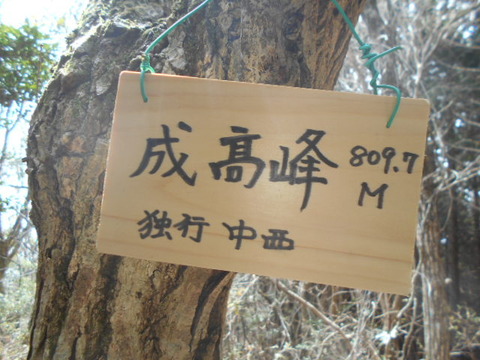 成髙峰 809.7M
独行 中西